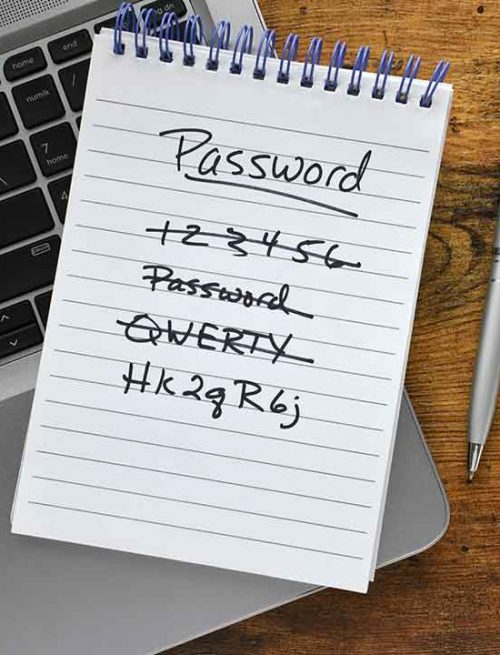 home
end
pg dn
num lk
/
7
home
4
Password
123456
Password
QWERTY
Hk2qR6j